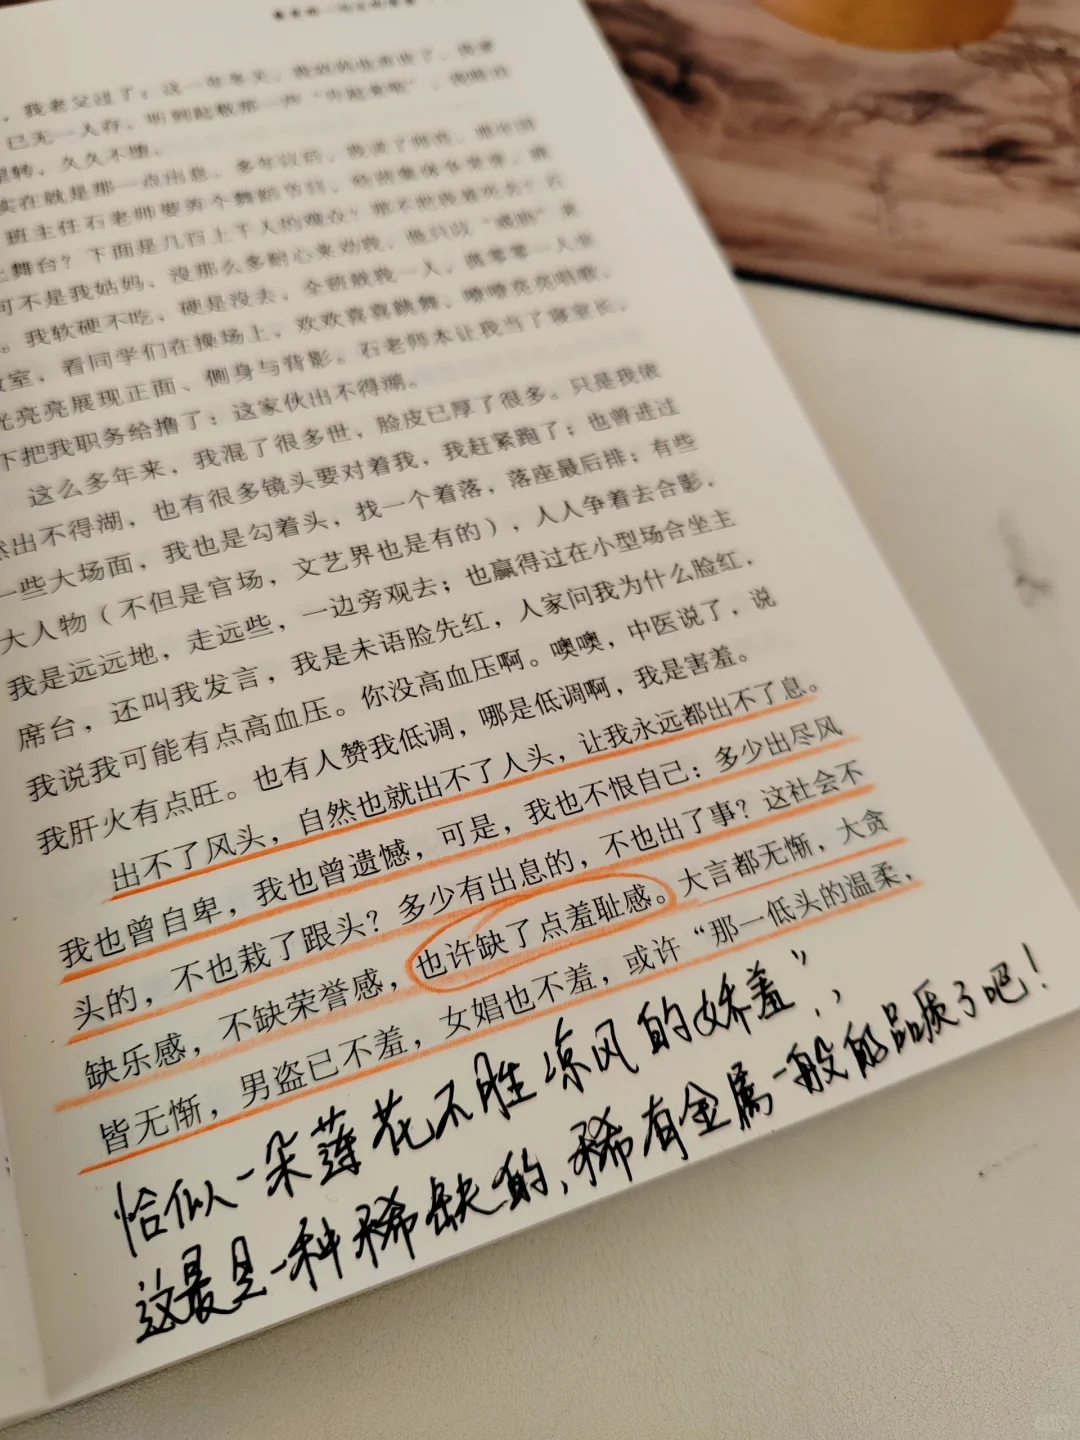 ，我老父过了；这一年冬天，
已无一人存，听到起敬那一声
里转，久久不堕。
实在就是那一点出息。多年以后，我读了师范，
班主任石老师要弄个舞蹈节目，
上舞台？下面是几百上千人的观众？那不把我羞死去？石
可不是我姑妈，没那么多耐心来劝我，他只以“威胁”来
。我软硬不吃，硬是没去，全班就我一人，孤零零一人坐
教室，看同学们在操场上，欢欢喜喜跳舞，嘹嘹亮亮唱歌，
光亮亮展现正面、侧身与背影。石老师本让我当了寝室长，
下把我职务给撸了：这家伙出不得湖。
这么多年来，我混了很多世，脸皮已厚了很多。只是我依
然出不得湖，也有很多镜头要对着我，我赶紧跑了；也曾进过
一些大场面，我也是勾着头，找一个着落，落座最后排；有些
大人物（不但是官场，文艺界也是有的），人人争着去合影，
我是远远地，走远些，一边旁观去；也赢得过在小型场合坐主
席台，还叫我发言，我是未语脸先红，人家问我为什么脸红，
我说我可能有点高血压。你没高血压啊。噢噢，中医说了，说
我肝火有点旺。也有人赞我低调，哪是低调啊，我是害羞。
出不了风头，自然也就出不了人头，让我永远都出不了息。
我也曾自卑，我也曾遗憾，可是，我也不恨自己：多少出尽风
头的，不也栽了跟头？多少有出息的，不也出了事？这社会不
缺乐感，不缺荣誉感，也许缺了点羞耻感。大言都无惭，大贪
皆无惭，男盗已不羞，女娼也不羞，或许“那一低头的温柔，
恰似一朵莲花不胜凉风的娇羞”，
这是一种稀缺的，稀有金属一般的品质了吧！